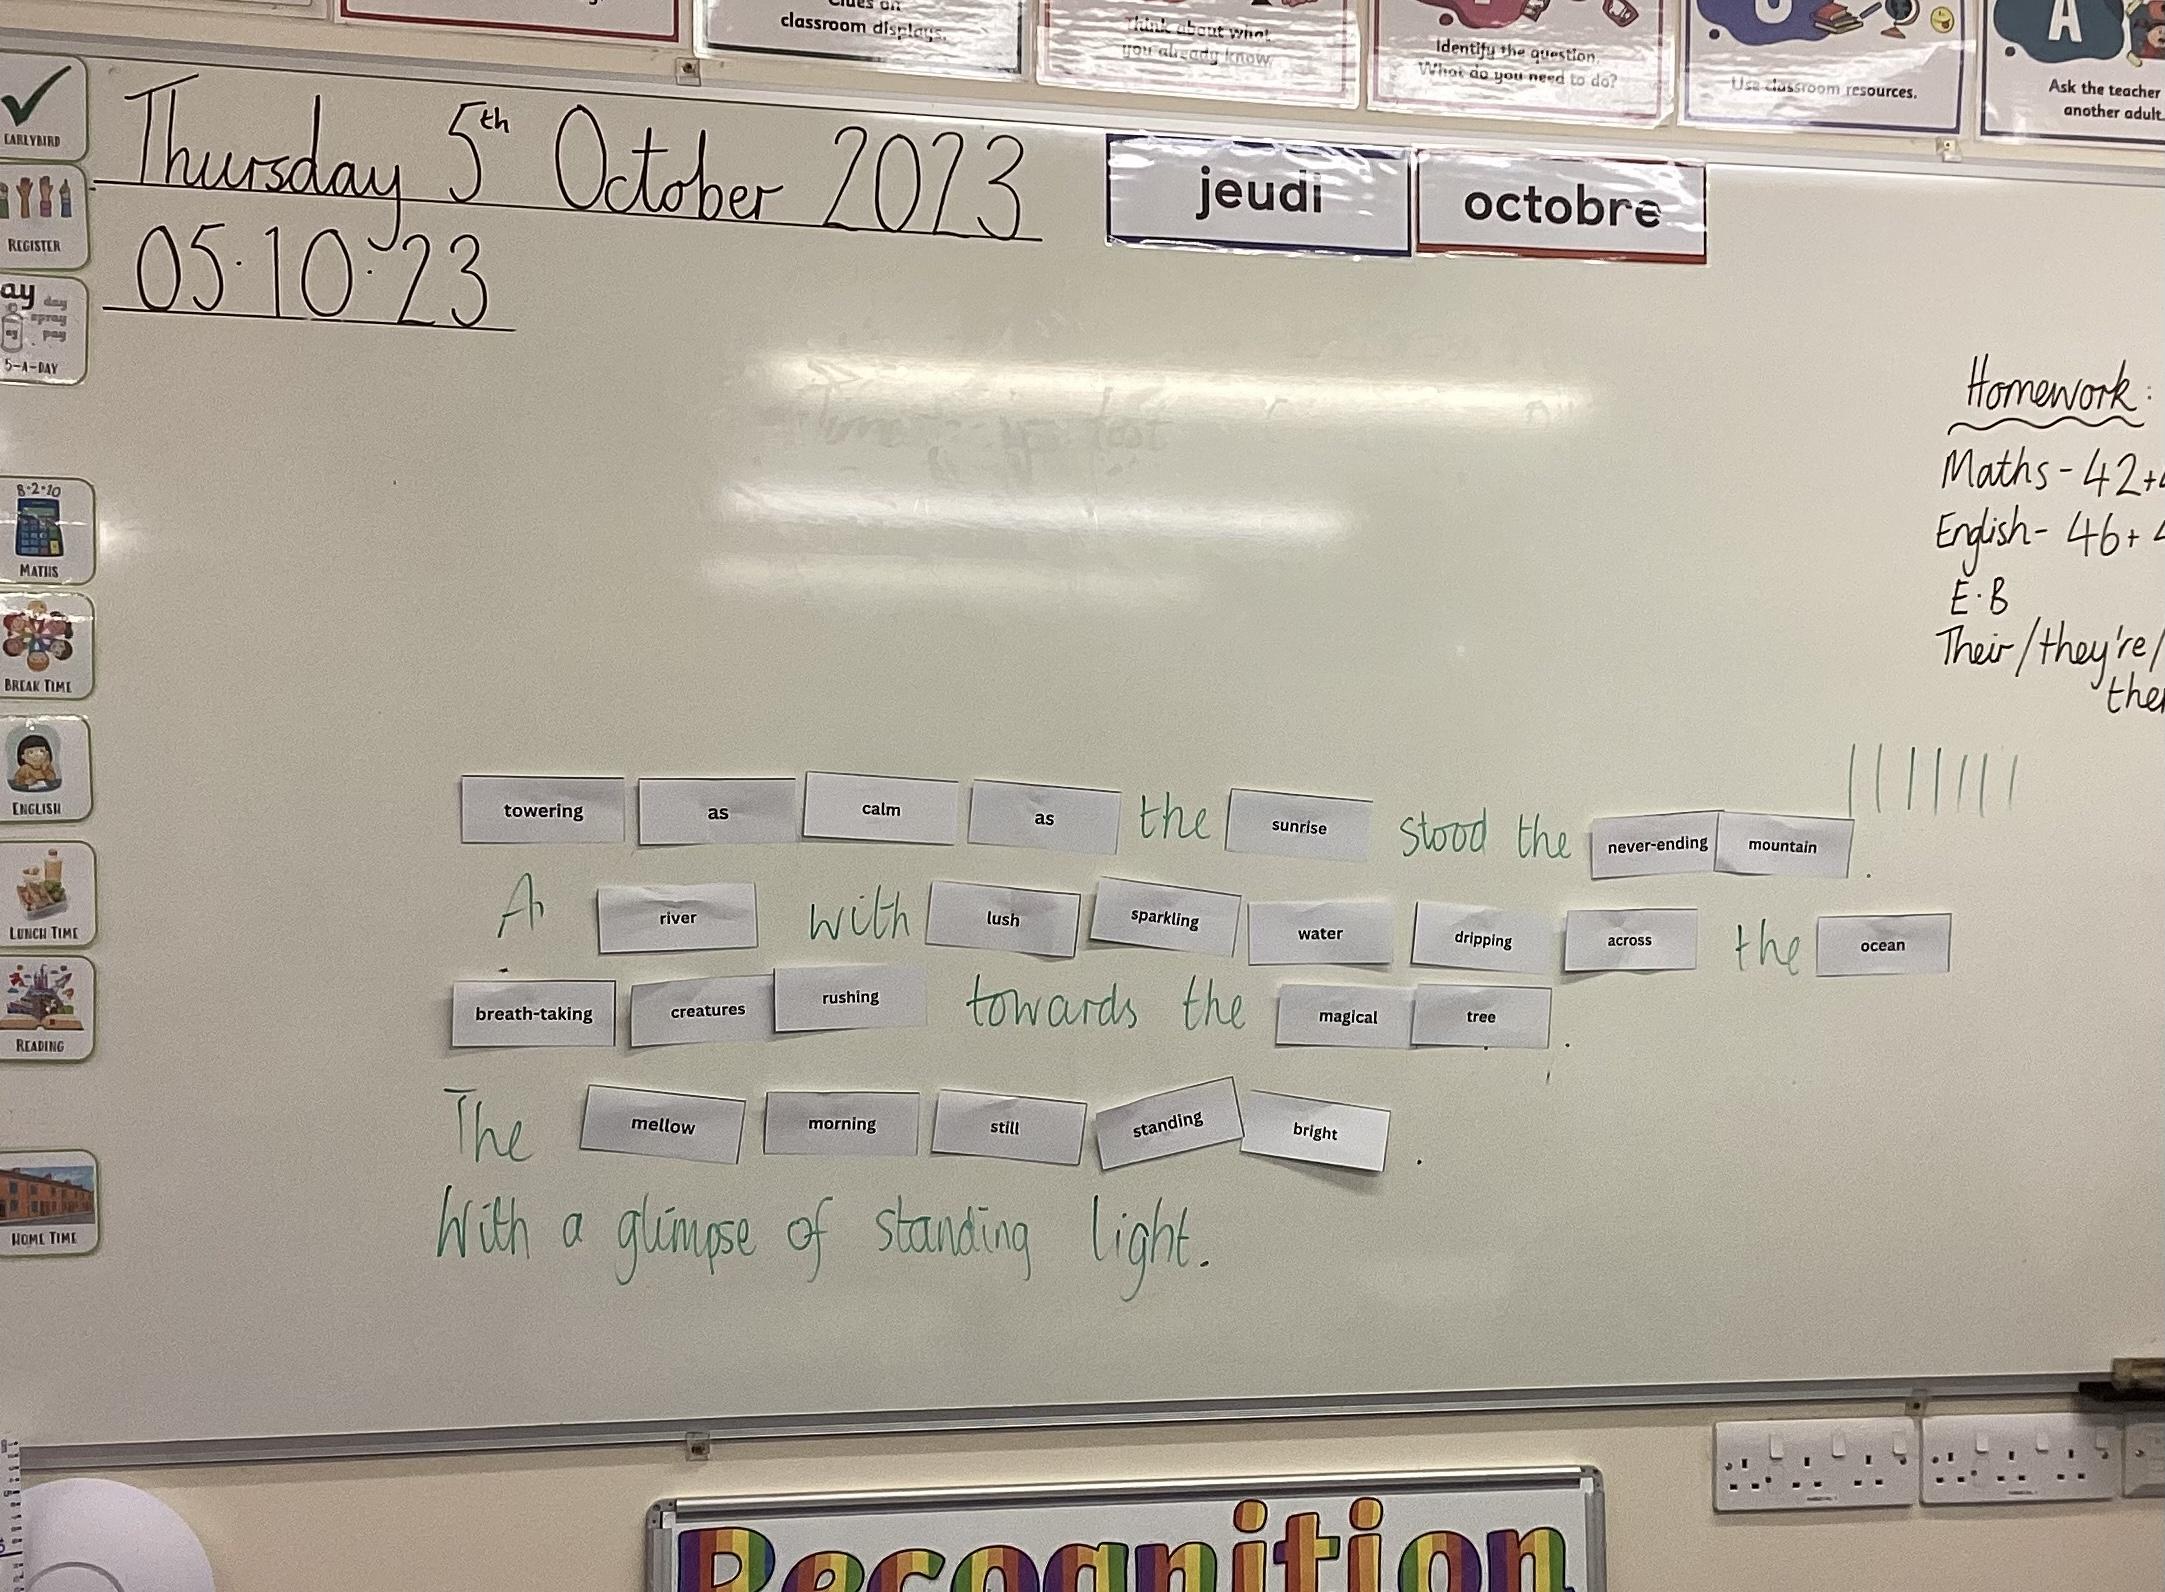 classroom displays.
Think about what
you already know.
Identify the question.
What do you need to do?
Use classroom resources.
A
Ask the teacher
another adult.
Thursday 5th October 2023
jeudi
octobre
05.10.23
EARLYBIRD
REGISTER
ay day
spray
pay
5-A-DAY
8·2·10
MATHS
BREAK TIME
ENGLISH
LUNCH TIME
READING
HOME TIME
Homework:
Maths - 42+
English - 46+
E.B
Their/they're/
towering as calm as the sunrise stood the never-ending mountain.
A river with lush sparkling water dripping across the ocean
breath-taking creatures rushing towards the magical tree.
The mellow morning still standing bright.
With a glimpse of standing light.
Recognition